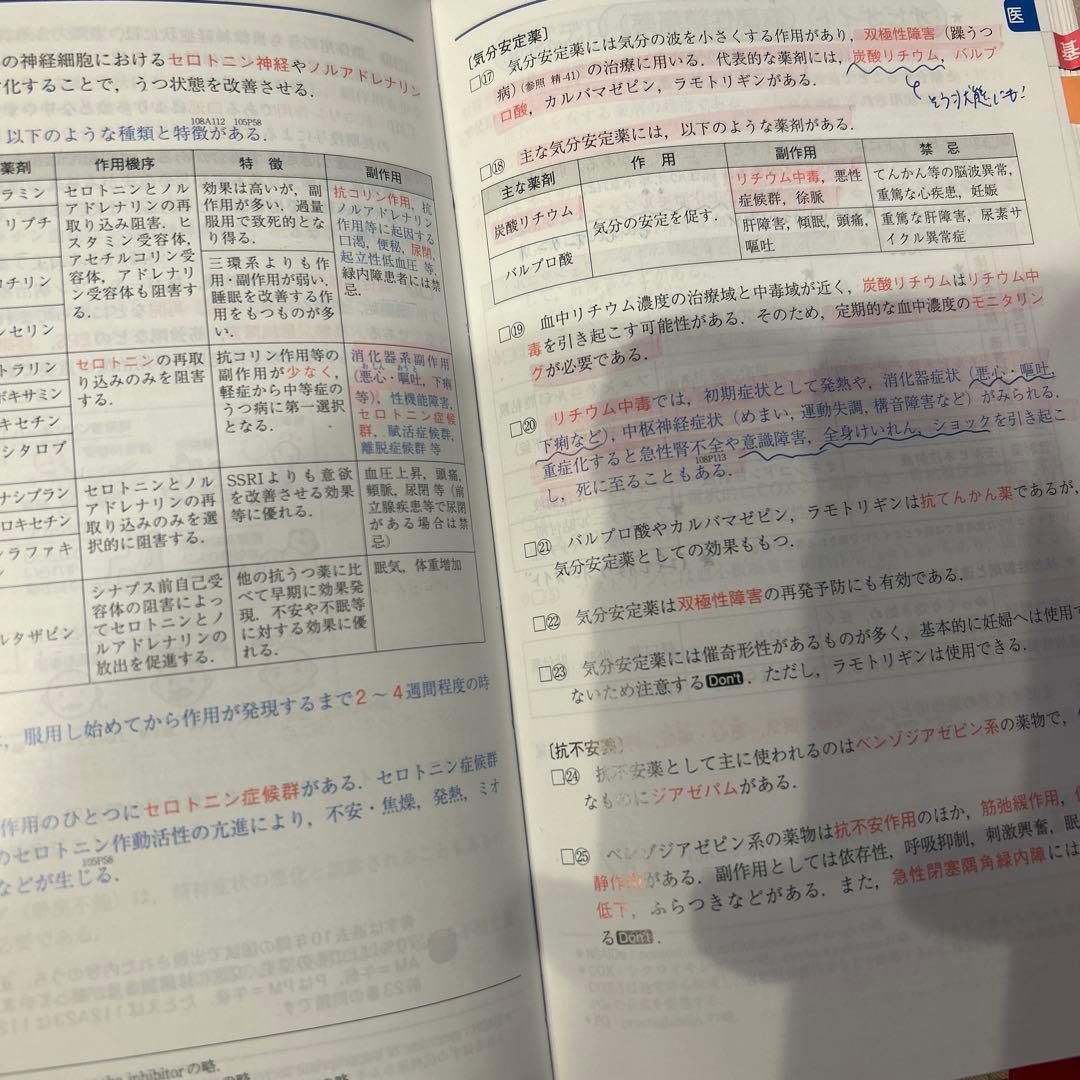 の神経細胞におけるセロトニン神経やノルアドレナリン
化することで，うつ状態を改善させる．
108A112 105P58
以下のような種類と特徴がある．
薬剤 作用機序 特徴 副作用
ラミン
リプチ
セロトニンとノル
アドレナリンの再
取り込み阻害．ヒ
スタミン受容体，
アセチルコリン受
容体，アドレナリ
ン受容体も阻害す
る．
効果は高いが，副
作用が多い．過量
服用で致死的とな
り得る．
抗コリン作用，抗
ノルアドレナリン
作用等に起因する
口渇，便秘，尿閉，
起立性低血圧 等．
緑内障患者には禁
忌．
ロチリン
ンセリン
三環系よりも作
用・副作用が弱い．
睡眠を改善する作
用をもつものが多
い．
トラリン
ボキサミン
キセチン
シタロプ
セロトニンの再取
り込みのみを阻害
する．
抗コリン作用等の
副作用が少なく，
軽症から中等症の
うつ病に第一選択
となる．
消化器系副作用
（悪心・嘔吐，下痢
等），性機能障害，
セロトニン症候
群，賦活症候群，
離脱症候群 等
ナシプラン
ロキセチン
ラファキ
ン
セロトニンとノル
アドレナリンの再
取り込みのみを選
択的に阻害する．
SSRIよりも意欲
を改善させる効果
等に優れる．
血圧上昇，頭痛，
頻脈，尿閉 等（前
立腺疾患等で尿閉
がある場合は禁
忌）
ルタザピン
シナプス前自己受
容体の阻害によっ
てセロトニンとノ
ルアドレナリンの
放出を促進する．
他の抗うつ薬に比
べて早期に効果発
現．不安や不眠等
に対する効果に優
れる．
眠気，体重増加
，服用し始めてから作用が発現するまで2～4週間程度の時
作用のひとつにセロトニン症候群がある．セロトニン症候群
のセロトニン作動活性の亢進により，不安・焦燥，発熱，ミオ
105P58
などが生じる．
inhibitorの略．
の略．
医
基
〔気分安定薬〕
□⑰ 気分安定薬には気分の波を小さくする作用があり，双極性障害（躁うつ
病）（参照 精-41）の治療に用いる．代表的な薬剤には，炭酸リチウム，バルプ
ロ酸，カルバマゼピン，ラモトリギンがある．
そう状態にも!
□⑱ 主な気分安定薬には，以下のような薬剤がある．
主な薬剤 作用 副作用 禁忌
炭酸リチウム
気分の安定を促す．
リチウム中毒，悪性
症候群，徐脈
てんかん等の脳波異常，
重篤な心疾患，妊娠
バルプロ酸
肝障害，傾眠，頭痛，
嘔吐
重篤な肝障害，尿素サ
イクル異常症
□⑲ 血中リチウム濃度の治療域と中毒域が近く，炭酸リチウムはリチウム中
毒を引き起こす可能性がある．そのため，定期的な血中濃度のモニタリン
グが必要である．
□⑳ リチウム中毒では，初期症状として発熱や，消化器症状（悪心・嘔吐，
おしん おうと
下痢など），中枢神経症状（めまい，運動失調，構音障害など）がみられる．
重症化すると急性腎不全や意識障害，全身けいれん，ショックを引き起こ
108P113
し，死に至ることもある．
□㉑ バルプロ酸やカルバマゼピン，ラモトリギンは抗てんかん薬であるが，
気分安定薬としての効果ももつ．
□㉒ 気分安定薬は双極性障害の再発予防にも有効である．
□㉓ 気分安定薬には催奇形性があるものが多く，基本的に妊婦へは使用で
ないため注意するDon't．ただし，ラモトリギンは使用できる．
〔抗不安薬〕
□㉔ 抗不安薬として主に使われるのはベンゾジアゼピン系の薬物で，
なものにジアゼパムがある．
□㉕ ベンゾジアゼピン系の薬物は抗不安作用のほか，筋弛緩作用，
静作用がある．副作用としては依存性，呼吸抑制，刺激興奮，眠
低下，ふらつきなどがある．また，急性閉塞隅角緑内障には
るDon't．